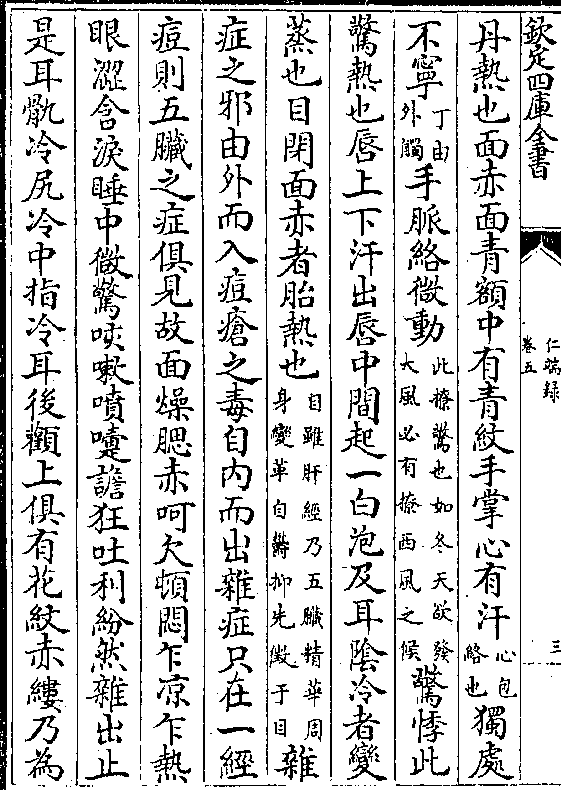 欽定四庫全書
仁端録
卷五
三
丹熱也面赤面青額中有青紋手掌心有汗心包絡也獨處
不寧丁由外觸手脈絡微動此撩驚也如冬天欲發大風必有撩西風之候驚悸此
驚熱也唇上下汗出唇中間起一白泡及耳陰冷者變
蒸也目閉面赤者胎熱也目雖肝經乃五臟精華周身變革自欝抑先徵于目雜
症之邪由外而入痘瘡之毒自内而出雜症只在一經
痘則五臟之症俱見故面燥腮赤呵欠頓悶乍凉乍熱
眼澀含淚睡中微驚咳嗽噴嚏譫狂吐利紛然雜出止
是耳骩冷尻冷中指冷耳後顴上俱有花紋赤縷乃為